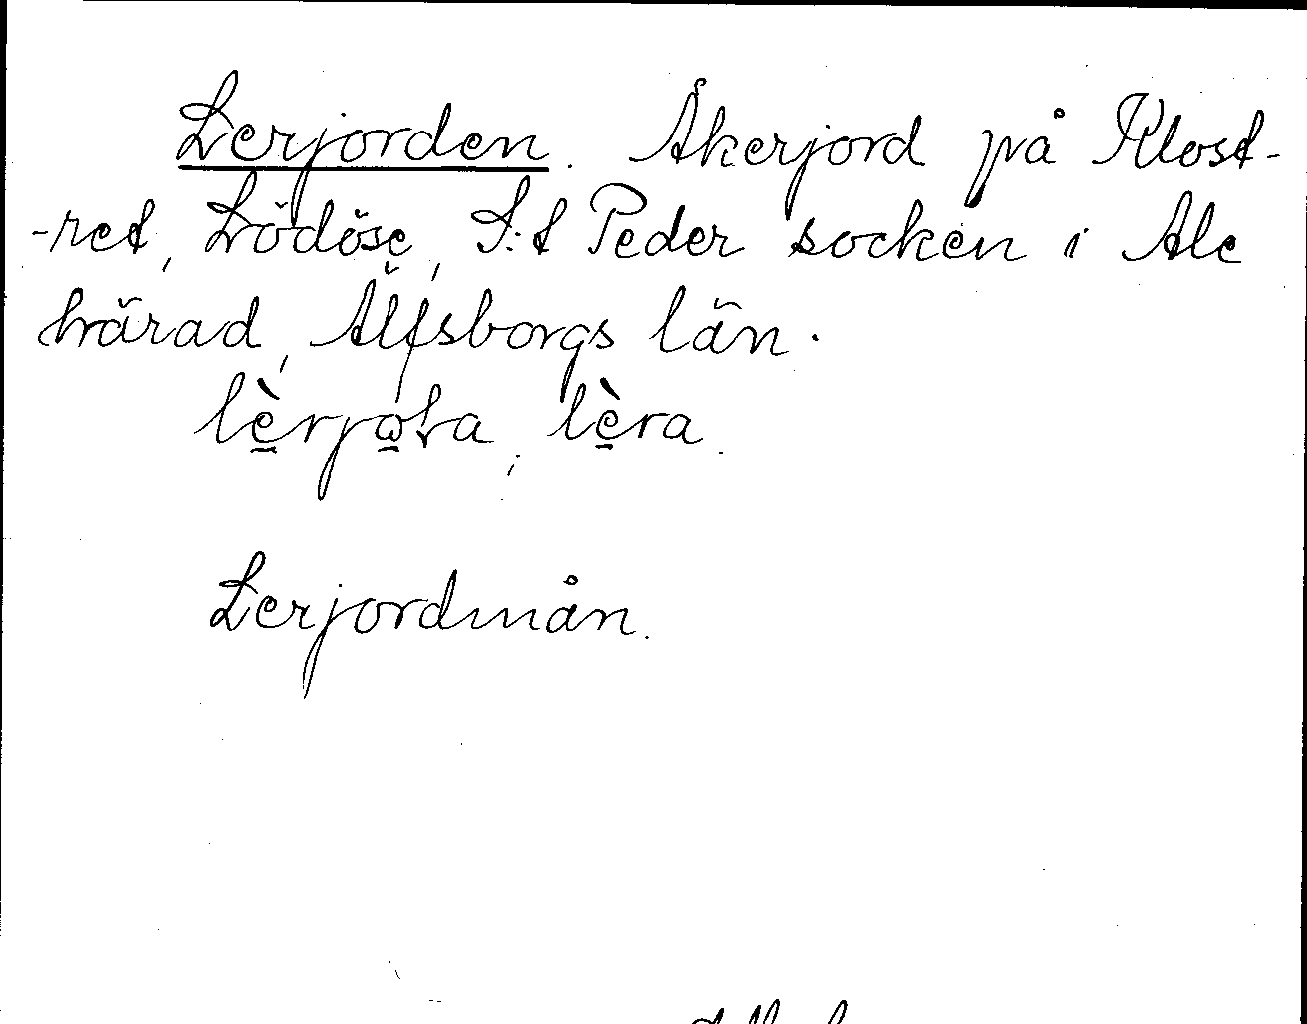 Lerjorden. Åkerjord på Klost-
-ret, Lödöse, S:t Peder socken i Ale
härad, Älfsborgs län.
lèrjoɽa; lèra.
Lerjordmån.